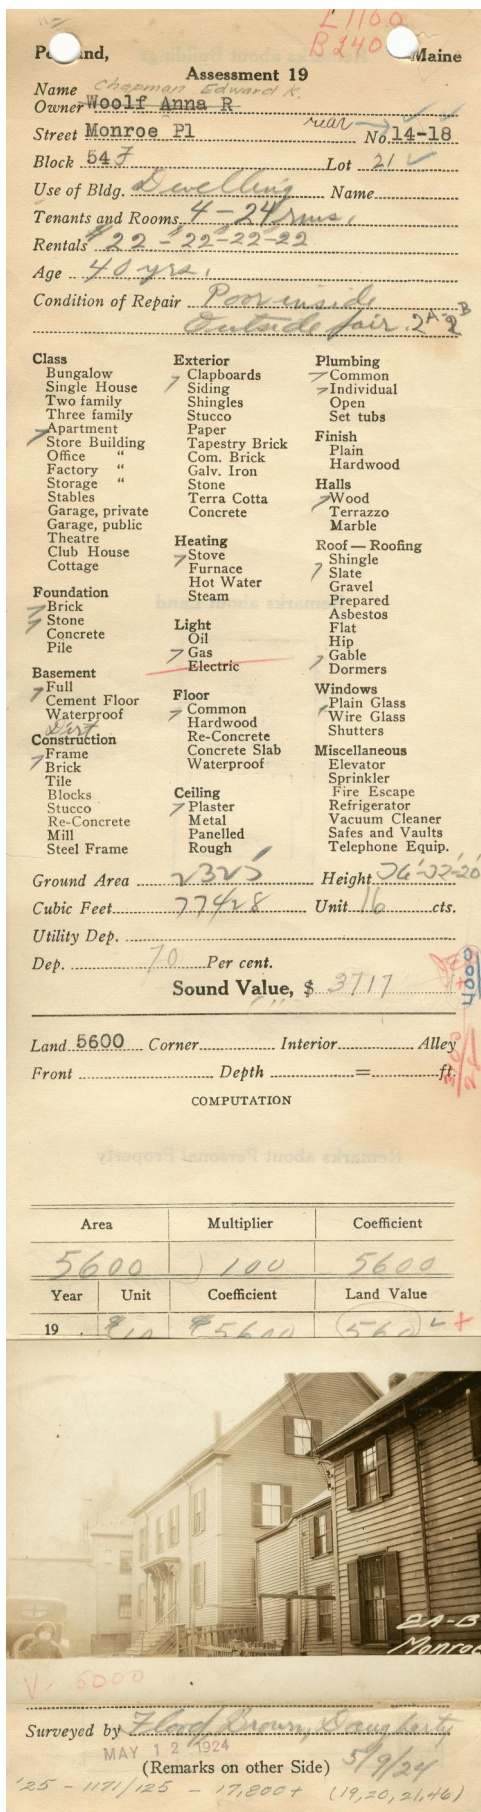 L 1100
B 240
Maine
Assessment 19
Name Chapman Edward K.
Owner Woolf Anna R
Street Monroe Pl rear No. 14-18
Block 54 F Lot 21
Use of Bldg. Dwelling Name
Tenants and Rooms 4 - 24 rms.
Rentals $22 - $22-22-22
Age 40 yrs.
Condition of Repair Poor inside
Outside fair. 2A-2B
Class
Bungalow
Single House
Two family
Three family
Apartment
Store Building
Office "
Factory "
Storage "
Stables
Garage, private
Garage, public
Theatre
Club House
Cottage
Foundation
Brick
Stone
Concrete
Pile
Basement
Full
Cement Floor
Waterproof
Dirt
Construction
Frame
Brick
Tile
Blocks
Stucco
Re-Concrete
Mill
Steel Frame
Exterior
Clapboards
Siding
Shingles
Stucco
Paper
Tapestry Brick
Com. Brick
Galv. Iron
Stone
Terra Cotta
Concrete
Heating
Stove
Furnace
Hot Water
Steam
Light
Oil
Gas
Electric
Floor
Common
Hardwood
Re-Concrete
Concrete Slab
Waterproof
Ceiling
Plaster
Metal
Panelled
Rough
Plumbing
Common
Individual
Open
Set tubs
Finish
Plain
Hardwood
Halls
Wood
Terrazzo
Marble
Roof — Roofing
Shingle
Slate
Gravel
Prepared
Asbestos
Flat
Hip
Gable
Dormers
Windows
Plain Glass
Wire Glass
Shutters
Miscellaneous
Elevator
Sprinkler
Fire Escape
Refrigerator
Vacuum Cleaner
Safes and Vaults
Telephone Equip.
Ground Area 2325' Height
Cubic Feet 77428 Unit 16 cts.
Utility Dep.
Dep. 70 Per cent.
Sound Value, $ 3717
4000
Land 5600 Corner Interior Alley
Front Depth = ft.
COMPUTATION
Area Multiplier Coefficient
5600 100 5600
Year Unit Coefficient Land Value
19 $10 $5600 560
2A-B
Monroe
V. 6000
Surveyed by Flood, Brown, Daugherty
MAY 12 1924
(Remarks on other Side) 5/9/24
'25 - 1171/125 - 17,800+ (19,20,21,46)